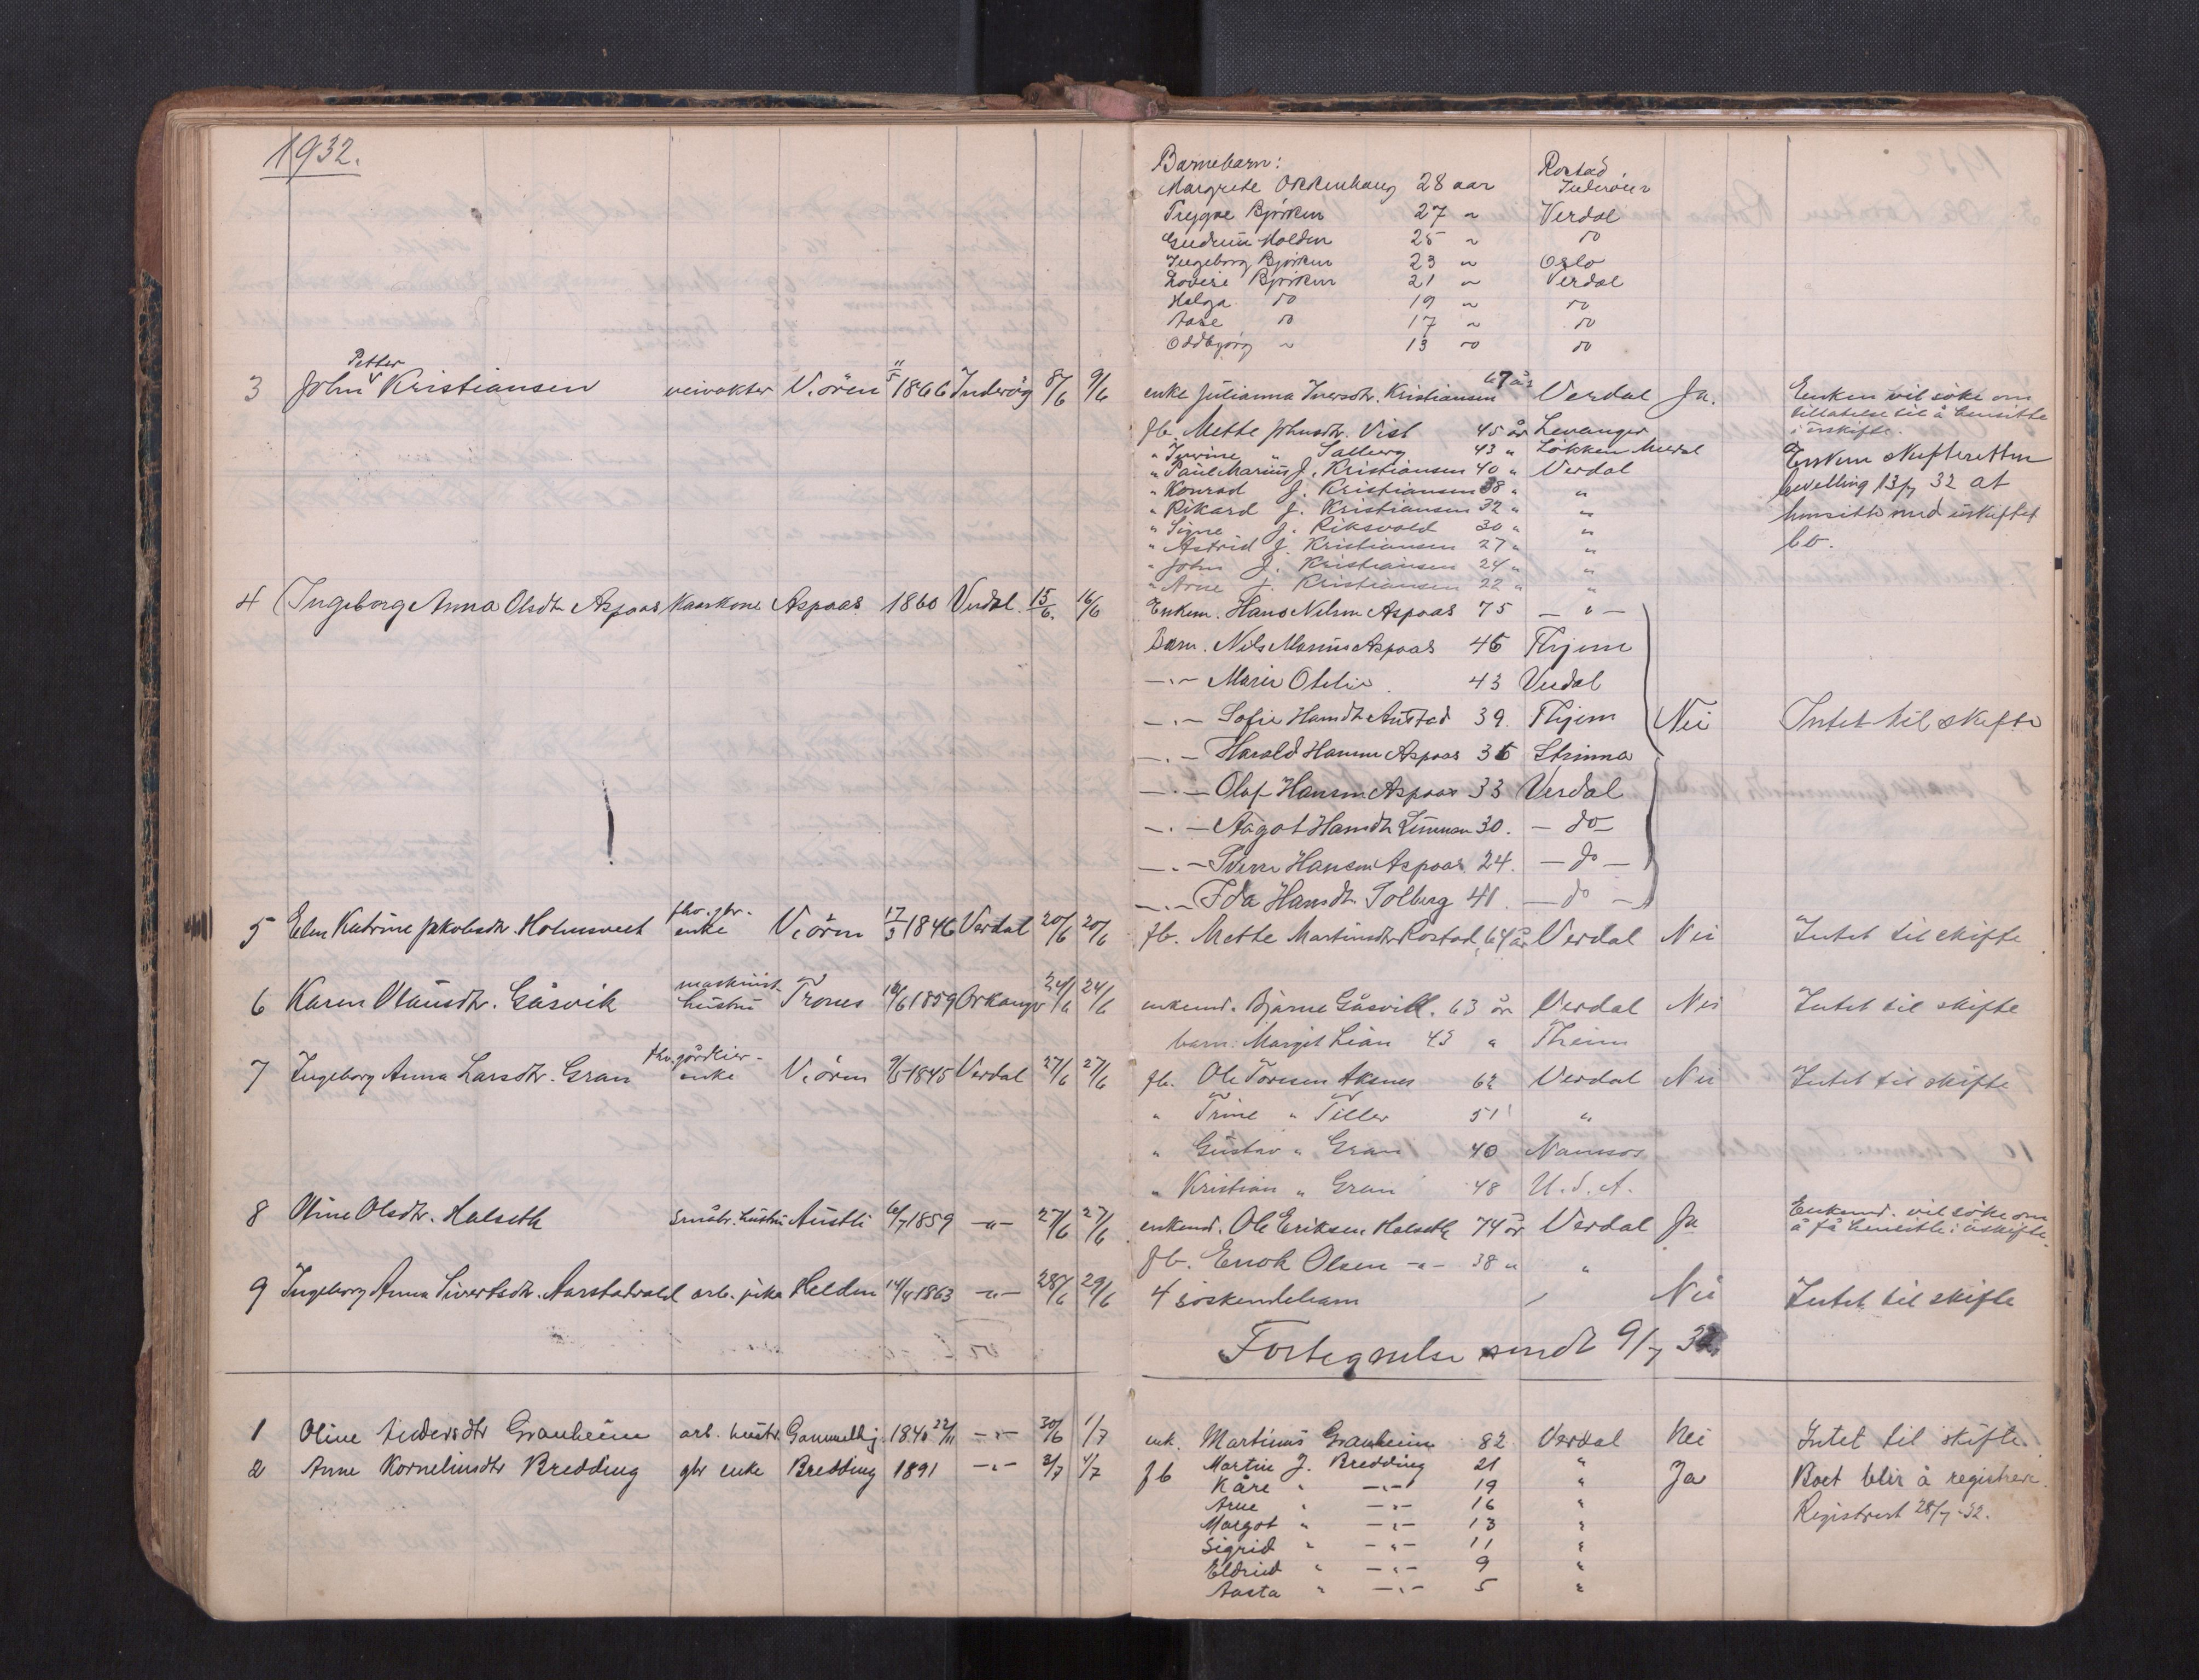 1932.
Barnebarn:
Margrete Okkenhaug 28 aar Rostad Inderöen
Trygve Bjørken 27 " Verdal
Gudrun Holden 25 " do
Ingeborg Bjørken 23 " Oslo
Lovise Bjørken 21 " Verdal
Helga do 19 " do
Aase do 17 " do
Oddbjørg " 13 " do
3 John Petter Kristiansen veivokter V.ören 11/5 1866 Inderöy 8/6 9/6 enke Julianna Iversdtr. Kristiansen 67 år Verdal Ja. Enken vil söke om
tillatelse til å hensitte
i uskifte.
fb. Mette Johnsdtr. Vist 45 år Levanger
" " Salberg 43 " Lökken
" Paul Marius J. Kristiansen 40 " Verdal
" Konrad J. Kristiansen 38 " "
" Rikard J. Kristiansen 32 " "
" Signe J. Riksvold 30 " "
" Astrid J. Kristiansen 27 " "
" John J. Kristiansen 24 " "
" Arne J. Kristiansen 22 " "
Enken skifteretten
bevilling 13/7 32 at
hensitte med uskiftet
bo.
4 Ingeborg Anna Olsdtr Aspaas Kaarkone Aspaas 1860 Verdal. 15/6. 16/6 Enkem. Hans Nilsen Aspaas 75 — " —
Barn. Nils Marius Aspaas 45 Thjem
—"— Marie Otelie 43 Verdal
—"— Sofie Hansdtr Austad 39. Thjem Nei Intet til skifte
—"— Harald Hansen Aspaas 35 Strinna
—"— Olaf Hansen Aspaas 33 Verdal
—"— Aagot Hansdtr 30. — do —
—"— Sverre Hansen Aspaas 24. — do —
—"— Ida Hansdtr. Solberg 41. — do —
5 Elen Katrine Jakobsdtr. Holmsveet fhv. gbr. enke V.ören 17/3 1846 Verdal 20/6 20/6 fb. Mette Martinsdtr Rostad, 64 år Verdal Nei Intet til skifte
6 Karen Olausdtr. Gåsvik maskinist hustru Trones 1859 Orkanger 24/6 24/6 enkemd. Bjarne Gåsvik. 63 år Verdal Nei Intet til skifte
barn: Margit Lian 43 " Theim
7 Ingeborg Anna Larsdtr. Gran fhv. gårdeier- enke V.ören 9/5 1845 Verdal 27/6 27/6 fb. Ole Toresen Aksnes 62 Verdal Nei Intet til skifte
" Trine " Tiller 51 "
" Gustav " Gran 40 Namsos
" Kristian " Gran 48 U.S.A.
8 Oline Olsdtr. Halseth småbr. hustru Austli 6/7 1859 —"— 27/6 27/6 enkemd. Ole Eriksen Halseth 74 år Verdal Ja Enkemd. vil söke om
å få hensitte i uskifte.
fb. Enok Olsen —"— 38 " "
9 Ingeborg Anna Sivertsdtr. Aarstadvold arb. pike Helden 14/4 1863 —"— 28/6 29/6 4 söskendebarn Nei Intet til skifte
Fortegnelse sendt 9/7 32
1 Oline Andersdtr Granheim arb. hustr. 1840 22/11 —"— 30/6 1/7 enk. Martinus Granheim 82 Verdal Nei Intet til skifte.
2 Anne Kornelinsdtr Bredding gbr enke Bredding 1891 —"— 2/7 4/7 fb Martin J. Bredding 21 " Ja Boet blir å registrere.
Kåre " —"— 19 "
Arne " —"— 16 " Registrert 28/7-32.
Margot " —"— 13 "
Sigrid " —"— 11 "
Eldrid " —"— 9 "
Aasta " —"— 5 "